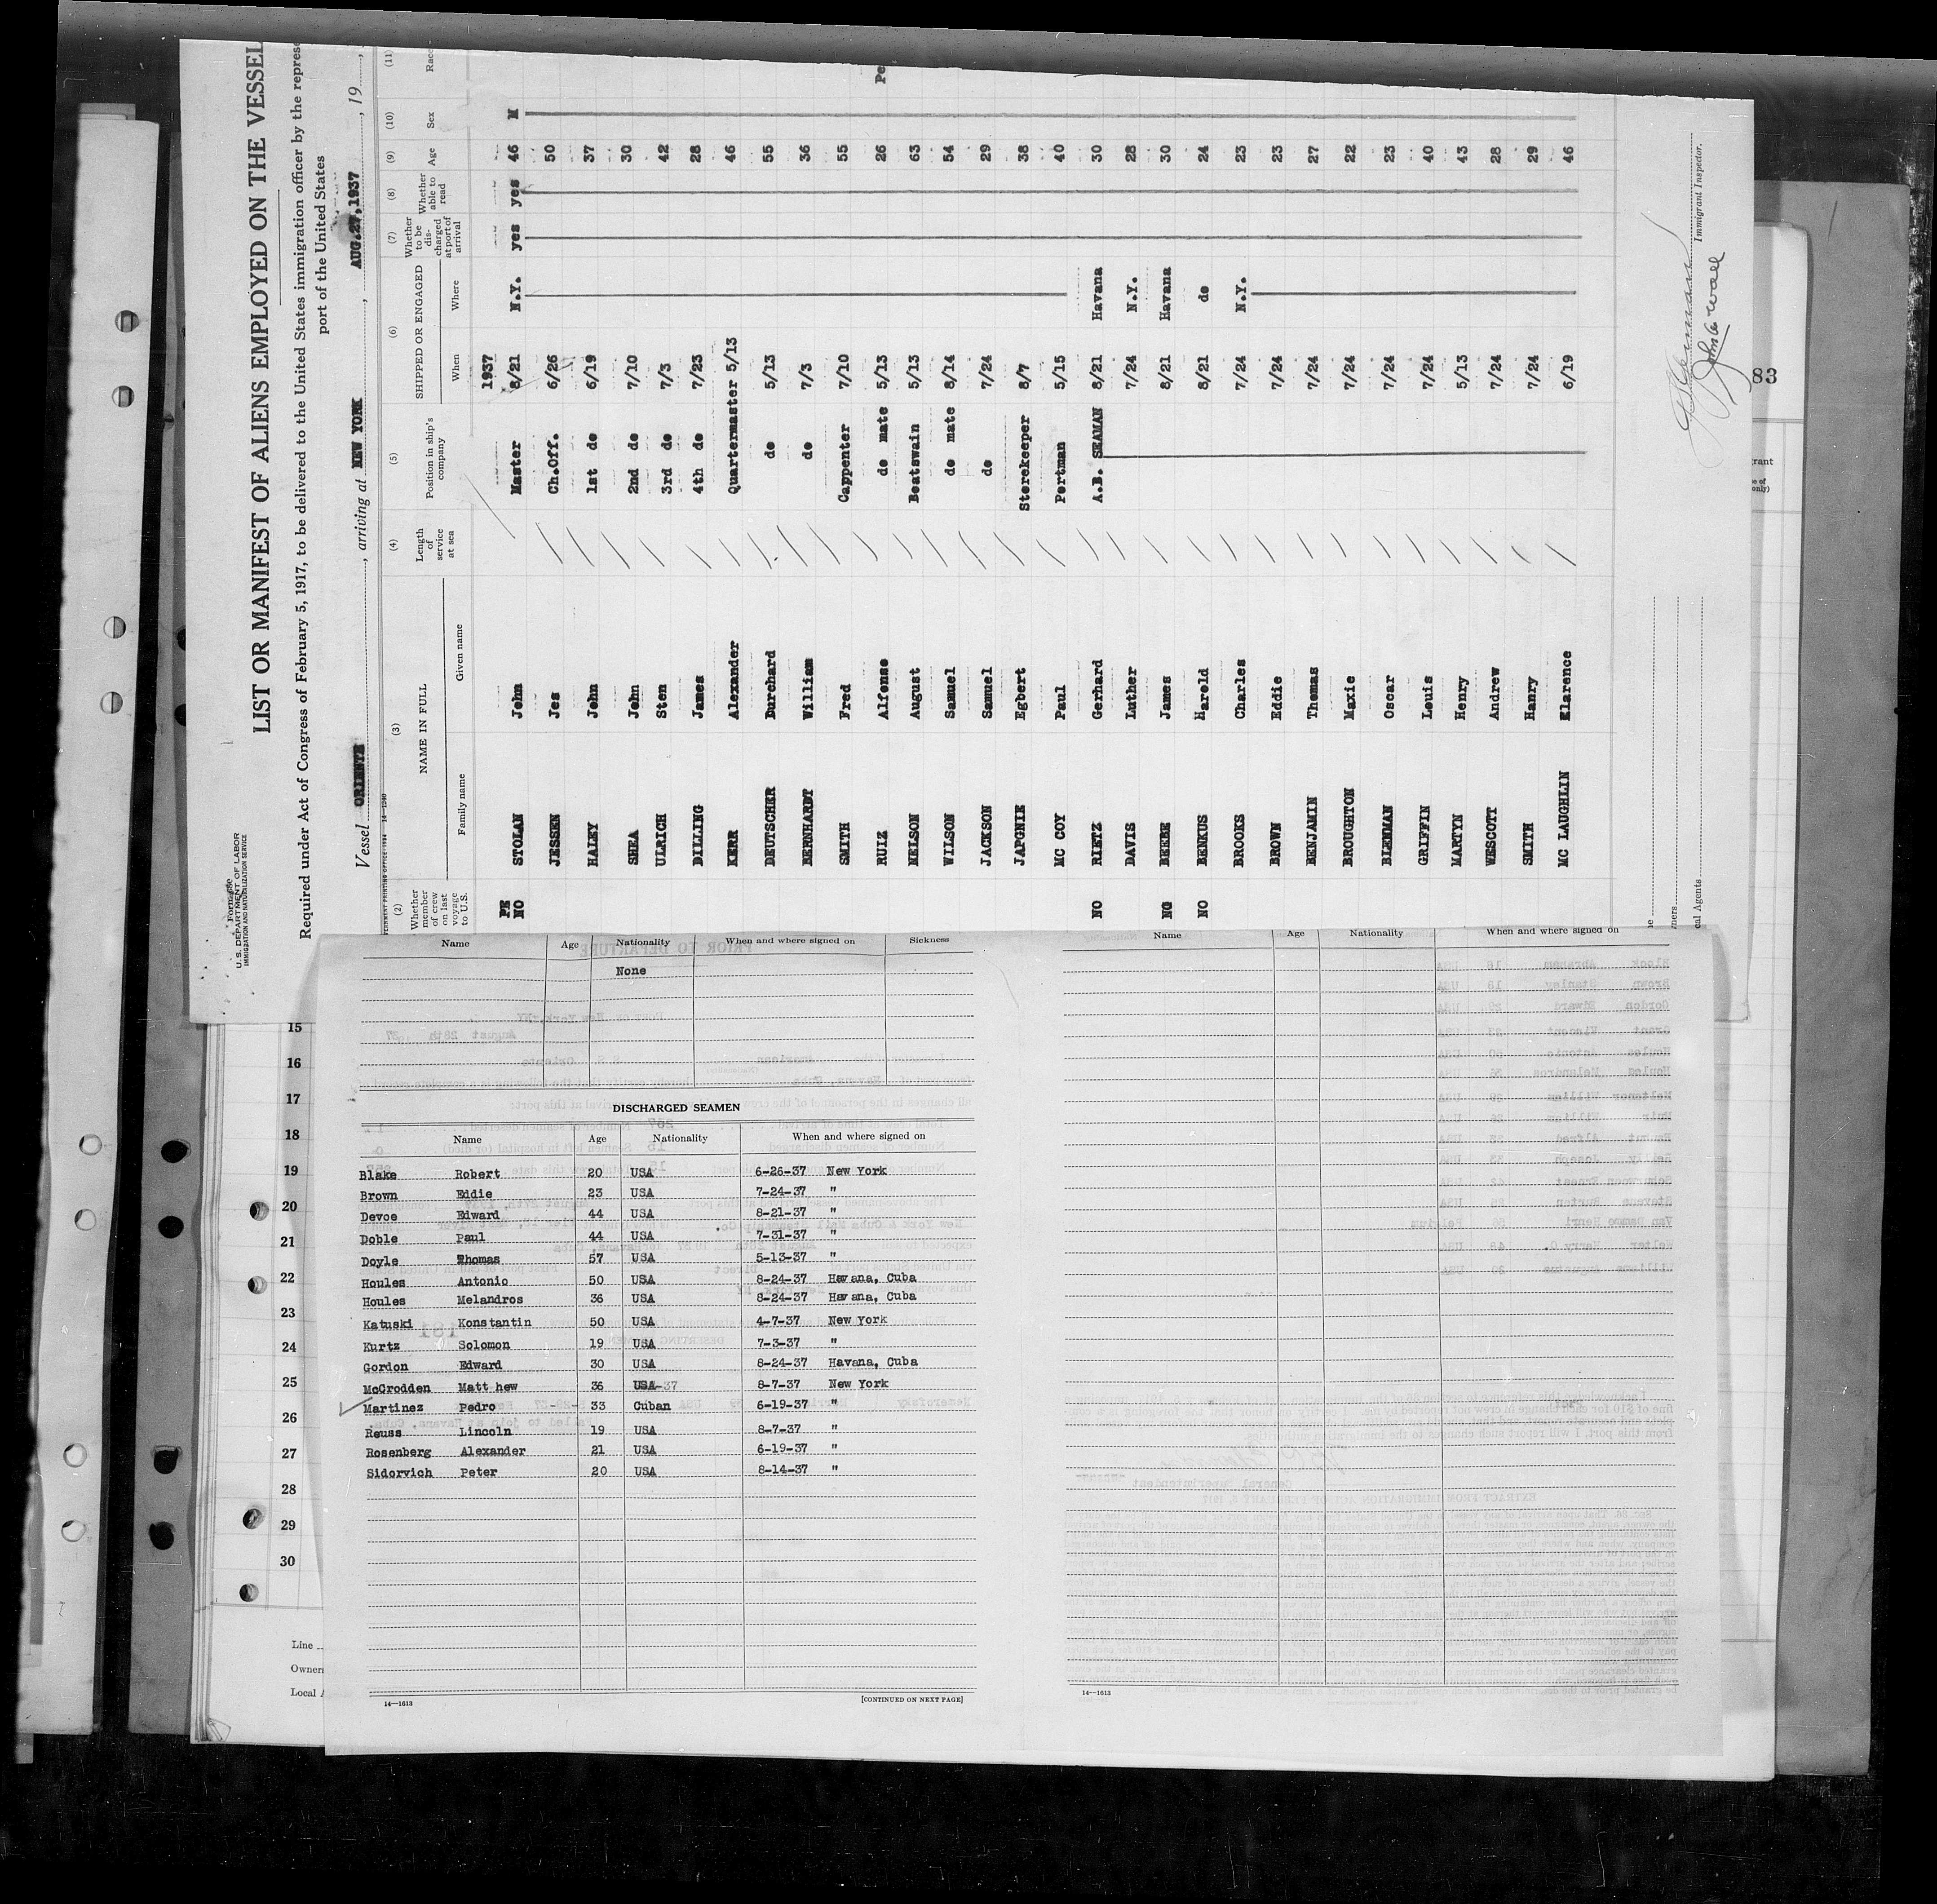 Form 689
U. S. DEPARTMENT OF LABOR
IMMIGRATION AND NATURALIZATION SERVICE
LIST OR MANIFEST OF ALIENS EMPLOYED ON THE VESSEL
Required under Act of Congress of February 5, 1917, to be delivered to the United States immigration officer by the
port of the United States
Vessel ORIENTE , arriving at NEW YORK , AUG.27,1937 , 19
(2) (3) (4) (5) (6) (7) (8) (9) (10) (11)
Whether member of crew on last voyage to U.S. NAME IN FULL Family name Given name Length of service at sea Position in ship's company SHIPPED OR ENGAGED When Where Whether to be discharged at port of arrival Whether able to read Age Sex
1937
PE
NO STOLAN John Master 8/21 N.Y. yes yes 46 M
JESSEN Jes Ch.Off. 6/26 50
HALEY John 1st do 6/19 37
SHEA John 2nd do 7/10 30
ULRICH Sten 3rd do 7/3 42
DILLING James 4th do 7/23 28
KERR Alexander Quartermaster 5/13 46
DEUTSCHER Burchard do 5/13 55
BERNHARDT William do 7/3 36
SMITH Fred Cappenter 7/10 55
RUIZ Alfonso do mate 5/13 26
NELSON August Boatswain 5/13 63
WILSON Samuel do mate 8/14 54
JACKSON Samuel do 7/24 29
JAPGNIE Egbert Storekeeper 8/7 38
MC COY Paul Portman 5/15 40
NO RIETZ Gerhard A.B. SEAMAN 8/21 Havana 30
DAVIS Luther 7/24 N.Y. 28
NO BEEBE James 8/21 Havana 30
NO BENKUS Harold 8/21 do 24
BROOKS Charles 7/24 N.Y. 23
BROWN Eddie 7/24 23
BENJAMIN Thomas 7/24 27
BROUGHTON Maxie 7/24 22
BLENMAN Oscar 7/24 23
GRIFFIN Louis 7/24 40
MARTYN Henry 5/13 43
WESCOTT Andrew 7/24 28
SMITH Hanry 7/24 29
MC LAUGHLIN Klarence 6/19 46
Immigrant Inspector.
83
Name Age Nationality When and where signed on Sickness
None
DISCHARGED SEAMEN
Name Age Nationality When and where signed on
Blake Robert 20 USA 6-26-37 New York
Brown Eddie 23 USA 7-24-37 "
Devoe Edward 44 USA 8-21-37 "
Doble Paul 44 USA 7-31-37 "
Doyle Thomas 57 USA 5-13-37 "
Houles Antonio 50 USA 8-24-37 Havana, Cuba
Houles Melandros 36 USA 8-24-37 Havana, Cuba
Katuski Konstantin 50 USA 4-7-37 New York
Kurtz Solomon 19 USA 7-3-37 "
Gordon Edward 30 USA 8-24-37 Havana, Cuba
McCrodden Matt hew 36 USA 8-7-37 New York
Martinez Pedro 33 Cuban 6-19-37 "
Reuss Lincoln 19 USA 8-7-37 "
Rosenberg Alexander 21 USA 6-19-37 "
Sidorvich Peter 20 USA 8-14-37 "
14—1613 [CONTINUED ON NEXT PAGE]
Name Age Nationality When and where signed on
14—1613
15
16
17
18
19
20
21
22
23
24
25
26
27
28
29
30
Line
Owner
Local